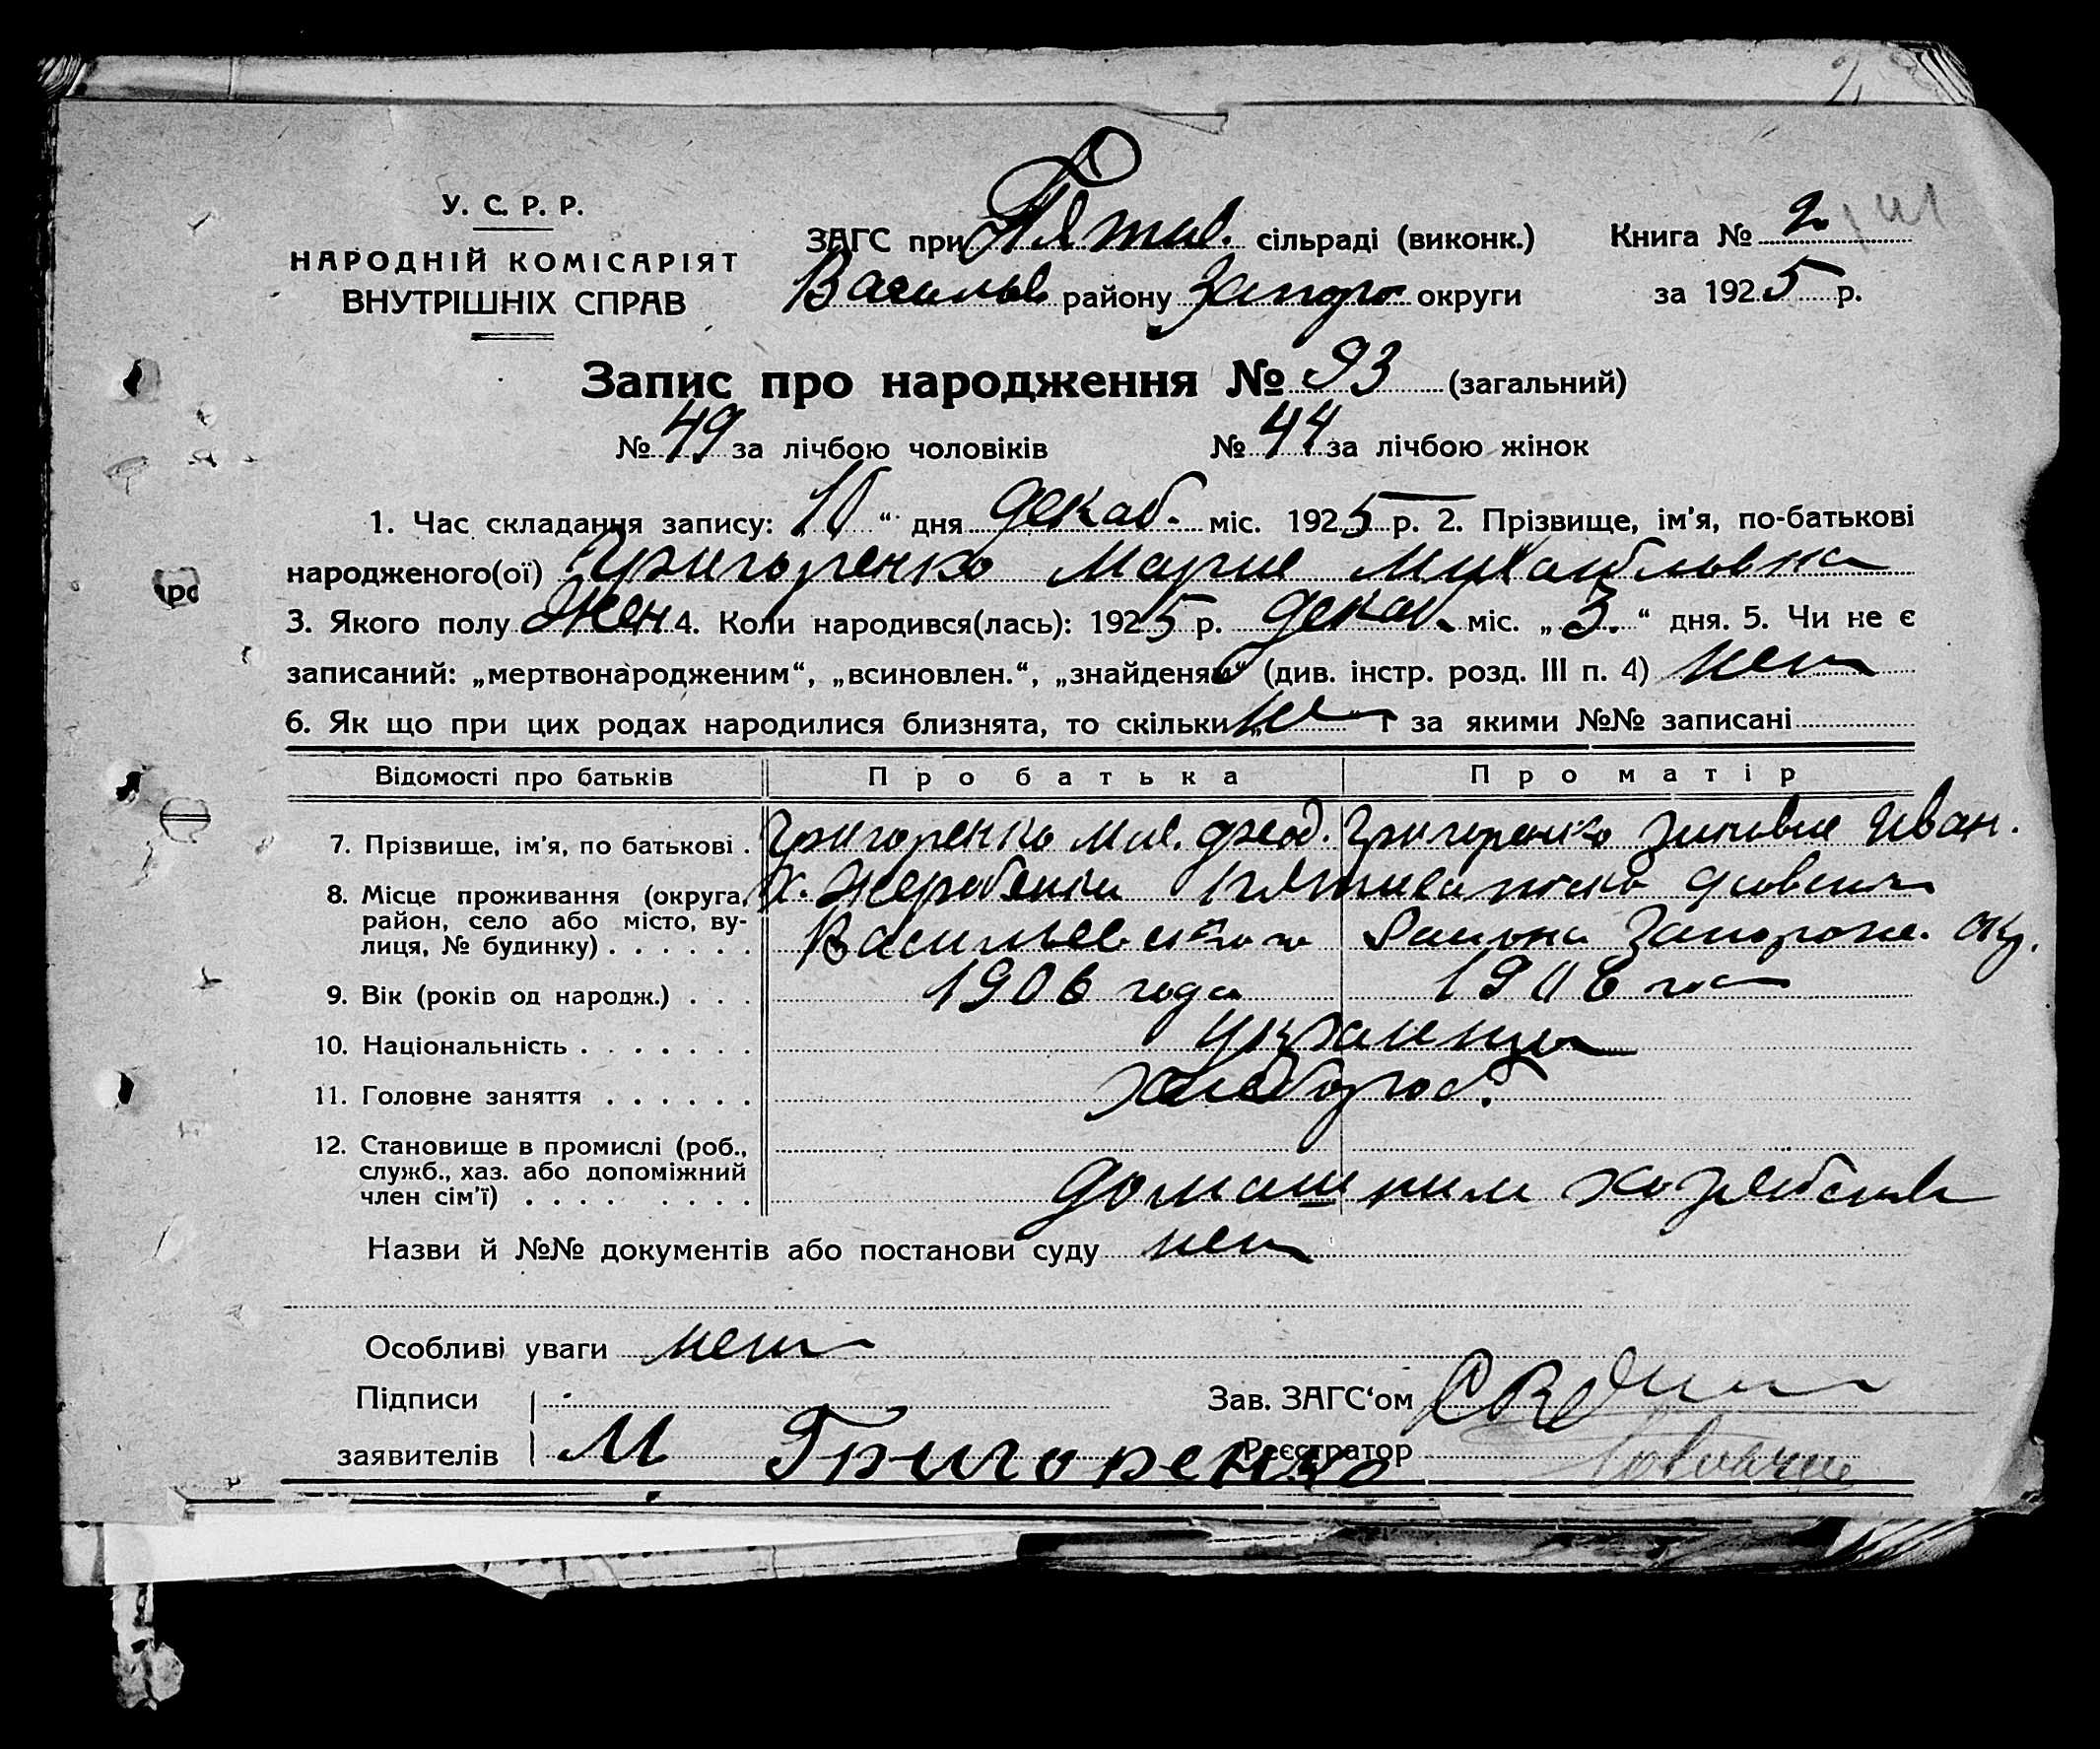 У. С. Р. Р.
НАРОДНІЙ КОМІСАРІЯТ
ВНУТРІШНІХ СПРАВ
ЗАГС при Пятих. сільраді (виконк.)
Васильев району Запоро округи
Книга № 2
за 1925 р.
Запис про народження № 93 (загальний)
№ 49 за лічбою чоловіків № 44 за лічбою жінок
1. Час складання запису: 10 “ дня декаб. міс. 1925 р. 2. Прізвище, ім'я, по-батькові
народженого(ої) Григоренко Мария Михайловна
3. Якого полу Жен 4. Коли народився(лась): 1925 р. декаб. міс. „ 3. “ дня. 5. Чи не є
записаний: „мертвонародженим“, „всиновлен.“, „знайденям“ (див. інстр. розд. III п. 4) нет
6. Як що при цих родах народилися близнята, то скільки „ не “ і за якими №№ записані
Відомості про батьків Про батька Про матір
7. Прізвище, ім'я, по батькові . Григоренко Мих. Феод. Григоренко Зиновия Иван.
8. Місце проживання (округа, район, село або місто, вулиця, № будинку) . . . . . . х.
Васильевского Района Запорож. окр.
9. Вік (років од народж.) . . . 1906 года 1906 го
10. Національність . . . . . . . украинцы
11. Головне заняття . . . . . . хлебороб.
12. Становище в промислі (роб.,
служб., хаз. або допоміжний
член сім'ї) . . . . . . . . . домашним хозяйством
Назви й №№ документів або постанови суду нет
Особливі уваги нет
Підписи
заявителів М Григоренко
Зав. ЗАГС‘ом
Реєстратор